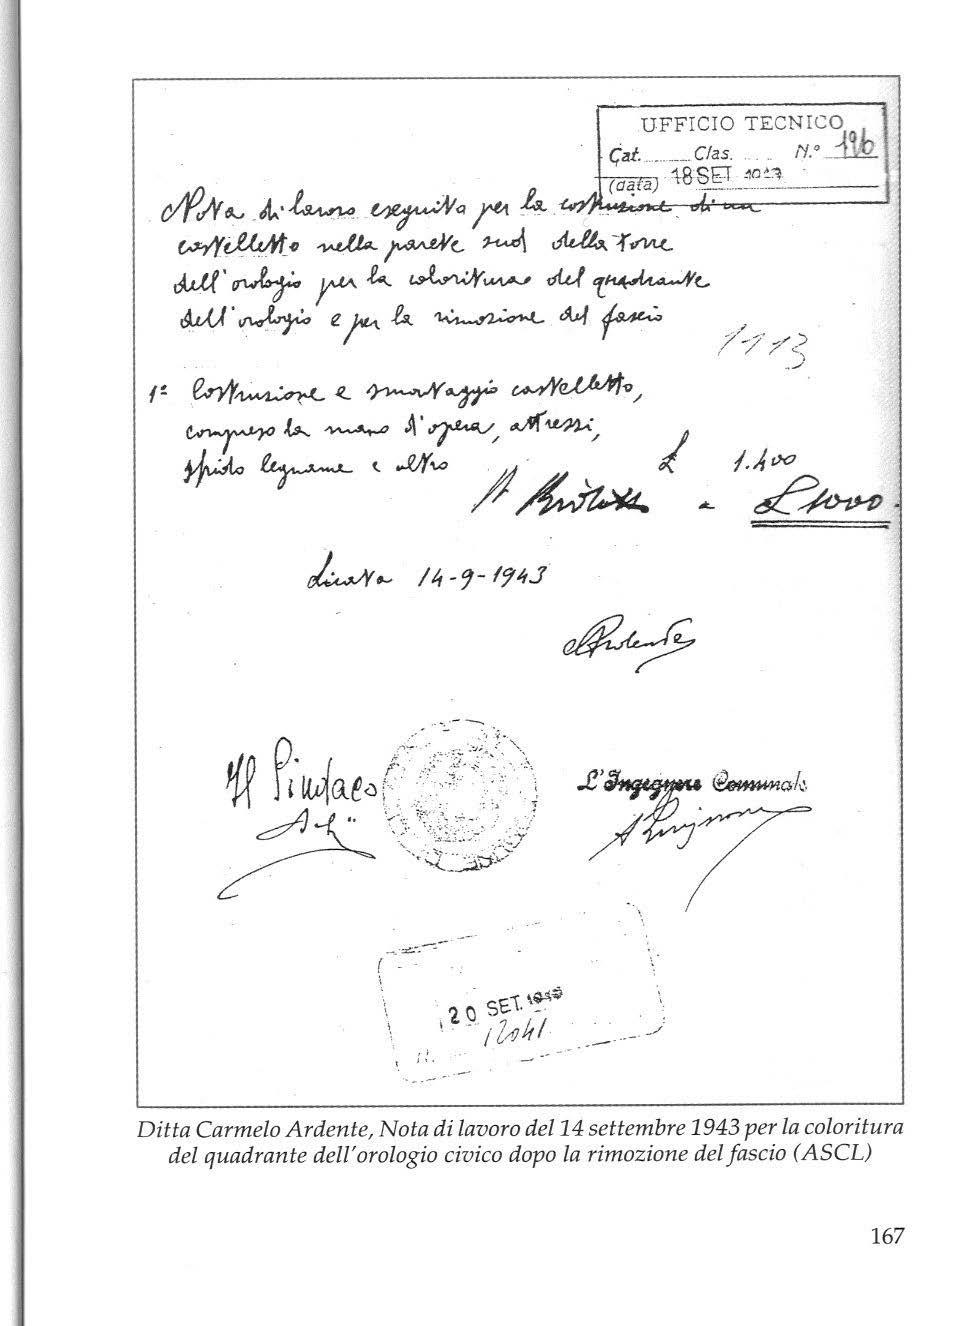 UFFICIO TECNICO
Cat. Clas. N.° 196
(data) 18 SET 1943
Nota di lavoro eseguita per la costruzione di un
castelletto nella parete sud della torre
dell'orologio per la coloritura del quadrante
dell'orologio e per la rimozione del fascio
1113
1° Costruzione e smontaggio castelletto,
compreso la mano d'opera, attrezzi,
sfrido legname e altro £ 1.400
£ 1000
Licata 14-9-1943
Ardente
Il Sindaco
L'Ingegnere Comunale
20 SET. 1943
12041
N.
Ditta Carmelo Ardente, Nota di lavoro del 14 settembre 1943 per la coloritura
del quadrante dell'orologio civico dopo la rimozione del fascio (ASCL)
167